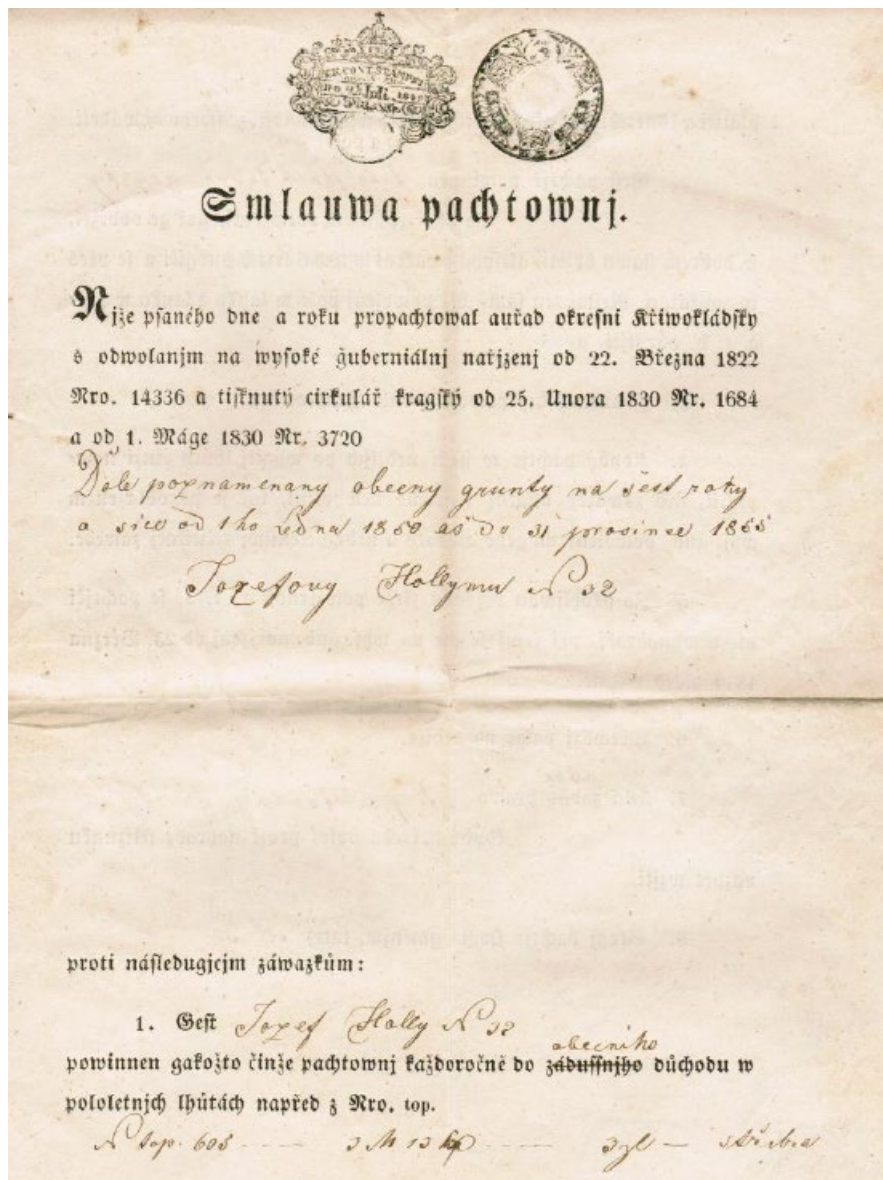 Juli
Smlauwa pachtownj.
Njže psaného dne a roku propachtowal auřad okresni Křiwokládsky
s odwolanjm na wysoké guberniálnj nařjzenj od 22. Března 1822
Nro. 14336 a tisknutý cirkulář kragský od 25. Unora 1830 Nr. 1684
a od 1. Máge 1830 Nr. 3720
Dole poznamenany obecny grunty na šest roky
a sice od 1ho Ledna 1850 aš do 31 prosince 1855
Jozefovy Hollymu N 32
proti následugjcjm záwazkům:
1. Gest Jozef Holly N 32
obecniho
powinnen gakožto činže pachtownj každoročně do zádussnjho důchodu w
pololetnjch lhůtách napřed z Nro. top.
N top. 605 ---- 3 M 13 ---- 3 zl — střibra